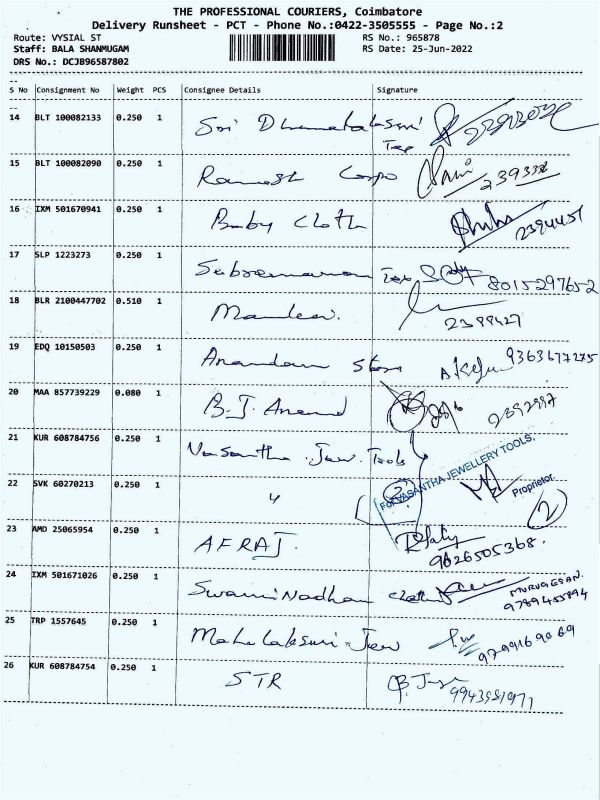 THE PROFESSIONAL COURIERS, Coimbatore
Delivery Runsheet - PCT - Phone No.:0422-3505555 - Page No.:2
Route: VYSIAL ST RS No.: 965878
Staff: BALA SHANMUGAM RS Date: 25-Jun-2022
DRS No.: DCJB96587802
S No Consignment No Weight PCS Consignee Details Signature
14 BLT 100082133 0.250 1 Sri Tex
15 BLT 100082090 0.250 1 Ramesh 239338
16 IXM 501670941 0.250 1 Baby Cloth 2394457
17 SLP 1223273 0.250 1 Tex 8015297652
18 BLR 2100447702 0.510 1 2399427
19 EDQ 10150503 0.250 1 Anandam 9363677275
20 MAA 857739229 0.080 1 B.J. Anand 2392997
21 KUR 608784756 0.250 1 Vasantha Jew. Tools
For VASANTHA JEWELLERY TOOLS,
22 SVK 60270213 0.250 1 " 2
Proprietor 2
23 AMD 25065954 0.250 1 AFRAJ. 9626505368.
24 IXM 501671026 0.250 1 Swaminadhan MURUGESAN.
9789455894
25 TRP 1557645 0.250 1 Mahalaksmi Jew 9799169069
26 KUR 608784754 0.250 1 STR 9943581971